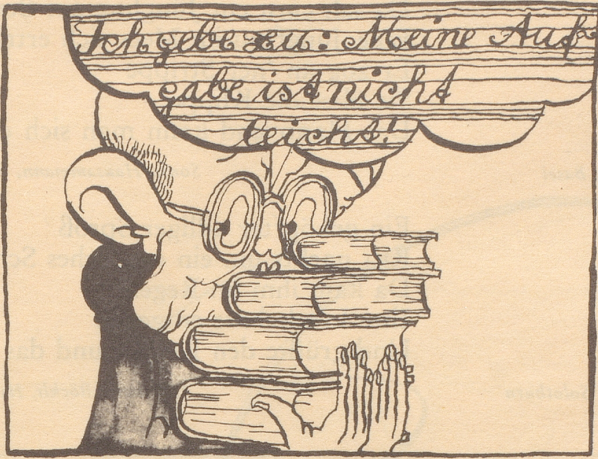 Ich gebe zu: Meine Auf-
gabe ist nicht
leicht!